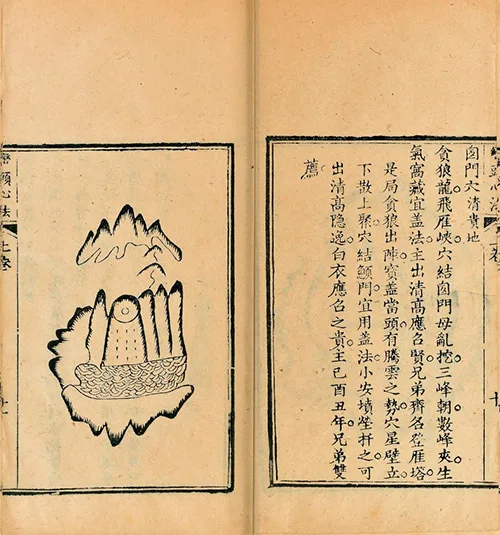 囟門穴清貴地
貪狼龍飛雁峽穴結囟門母亂挖三峰朝數峰夾生
氣窩藏宜蓋法主出清高應名賢兄弟齊名登雁塔
是局貪狼出陣寶蓋當頭有騰雲之勢穴星壁立
下散上聚穴結顖門宜用蓋法小安墳塋扦之可
出清高隱逸白衣應名之貴主巳酉丑年兄弟雙
薦
頭心法
上卷